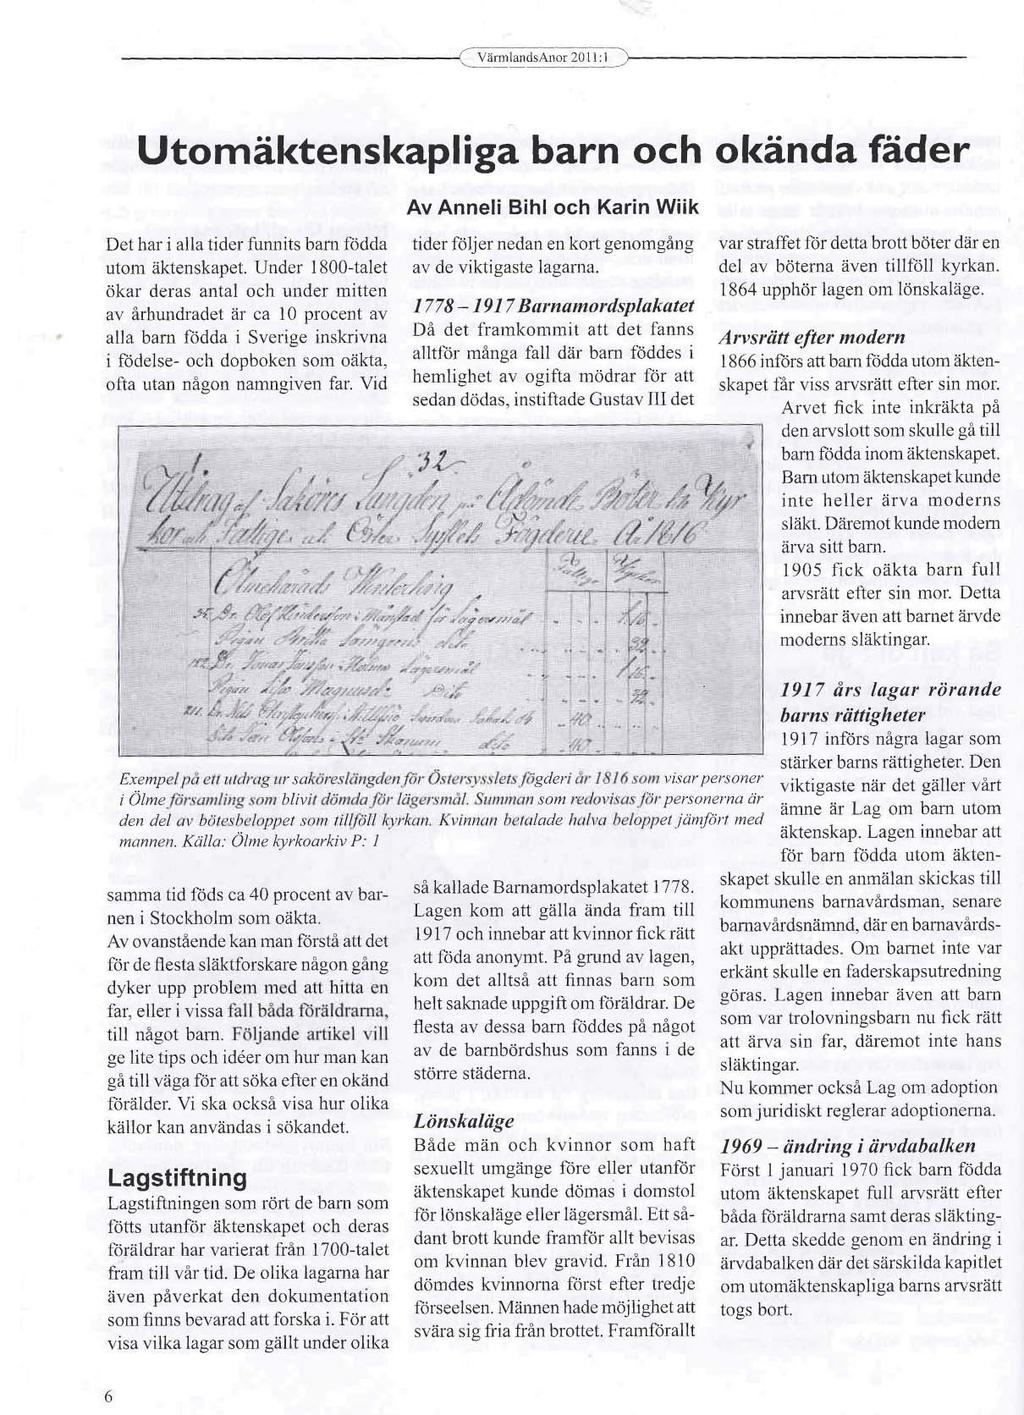 VärmlandsAnor 2011:1
Utomäktenskapliga barn och okända fäder
Av Anneli Bihl och Karin Wiik
Det har i alla tider funnits barn födda
utom äktenskapet. Under 1800-talet
ökar deras antal och under mitten
av århundradet är ca 10 procent av
alla barn födda i Sverige inskrivna
i födelse- och dopboken som oäkta,
ofta utan någon namngiven far. Vid
samma tid föds ca 40 procent av bar-
nen i Stockholm som oäkta.
Av ovanstående kan man förstå att det
för de flesta släktforskare någon gång
dyker upp problem med att hitta en
far, eller i vissa fall båda föräldrarna,
till något barn. Följande artikel vill
ge lite tips och idéer om hur man kan
gå till väga för att söka efter en okänd
förälder. Vi ska också visa hur olika
källor kan användas i sökandet.
Lagstiftning
Lagstiftningen som rört de barn som
fötts utanför äktenskapet och deras
föräldrar har varierat från 1700-talet
fram till vår tid. De olika lagarna har
även påverkat den dokumentation
som finns bevarad att forska i. För att
visa vilka lagar som gällt under olika
tider följer nedan en kort genomgång
av de viktigaste lagarna.
1778 – 1917 Barnamordsplakatet
Då det framkommit att det fanns
alltför många fall där barn föddes i
hemlighet av ogifta mödrar för att
sedan dödas, instiftade Gustav III det
32.
Utdrag af Saköres Längden på Ådömde Böter till Kyr
kor och Fattige uti Öster Sysslets Fögderie År 1816
Fattige Kyrkor
Exempel på ett utdrag ur saköreslängden för Östersysslets fögderi år 1816 som visar personer
i Ölme församling som blivit dömda för lägersmål. Summan som redovisas för personerna är
den del av bötesbeloppet som tillföll kyrkan. Kvinnan betalade halva beloppet jämfört med
mannen. Källa: Ölme kyrkoarkiv P: 1
så kallade Barnamordsplakatet 1778.
Lagen kom att gälla ända fram till
1917 och innebar att kvinnor fick rätt
att föda anonymt. På grund av lagen,
kom det alltså att finnas barn som
helt saknade uppgift om föräldrar. De
flesta av dessa barn föddes på något
av de barnbördshus som fanns i de
större städerna.
Lönskaläge
Både män och kvinnor som haft
sexuellt umgänge före eller utanför
äktenskapet kunde dömas i domstol
för lönskaläge eller lägersmål. Ett så-
dant brott kunde framför allt bevisas
om kvinnan blev gravid. Från 1810
dömdes kvinnorna först efter tredje
förseelsen. Männen hade möjlighet att
svära sig fria från brottet. Framförallt
var straffet för detta brott böter där en
del av böterna även tillföll kyrkan.
1864 upphör lagen om lönskaläge.
Arvsrätt efter modern
1866 införs att barn födda utom äkten-
skapet får viss arvsrätt efter sin mor.
Arvet fick inte inkräkta på
den arvslott som skulle gå till
barn födda inom äktenskapet.
Barn utom äktenskapet kunde
inte heller ärva moderns
släkt. Däremot kunde modern
ärva sitt barn.
1905 fick oäkta barn full
arvsrätt efter sin mor. Detta
innebar även att barnet ärvde
moderns släktingar.
1917 års lagar rörande
barns rättigheter
1917 införs några lagar som
stärker barns rättigheter. Den
viktigaste när det gäller vårt
ämne är Lag om barn utom
äktenskap. Lagen innebar att
för barn födda utom äkten-
skapet skulle en anmälan skickas till
kommunens barnavårdsman, senare
barnavårdsnämnd, där en barnavårds-
akt upprättades. Om barnet inte var
erkänt skulle en faderskapsutredning
göras. Lagen innebar även att barn
som var trolovningsbarn nu fick rätt
att ärva sin far, däremot inte hans
släktingar.
Nu kommer också Lag om adoption
som juridiskt reglerar adoptionerna.
1969 – ändring i ärvdabalken
Först 1 januari 1970 fick barn födda
utom äktenskapet full arvsrätt efter
båda föräldrarna samt deras släkting-
ar. Detta skedde genom en ändring i
ärvdabalken där det särskilda kapitlet
om utomäktenskapliga barns arvsrätt
togs bort.
6